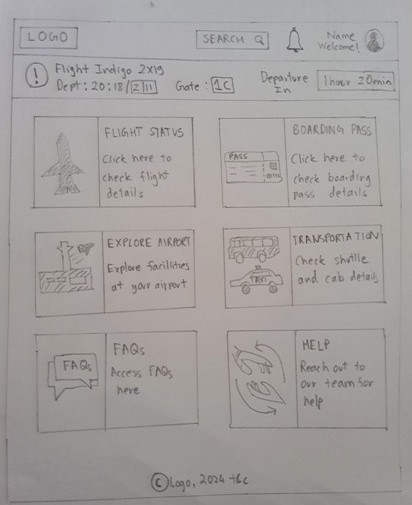 LOGO
SEARCH
Name
Welcome!
! Flight Indigo 2X19
Dept: 20:18/2/11
Gate: 1C
Departure
In
1hour 20min
FLIGHT STATUS
Click here to
check flight
details
BOARDING PASS
PASS
Click here to
check boarding
pass details
EXPLORE AIRPORT
Explore facilities
at your airport
TRANSPORTATION
TAXI
Check shuttle
and cab details
FAQs
FAQs
Access FAQs
here
HELP
Reach out to
our team for
help
© Logo, 2024 t&c